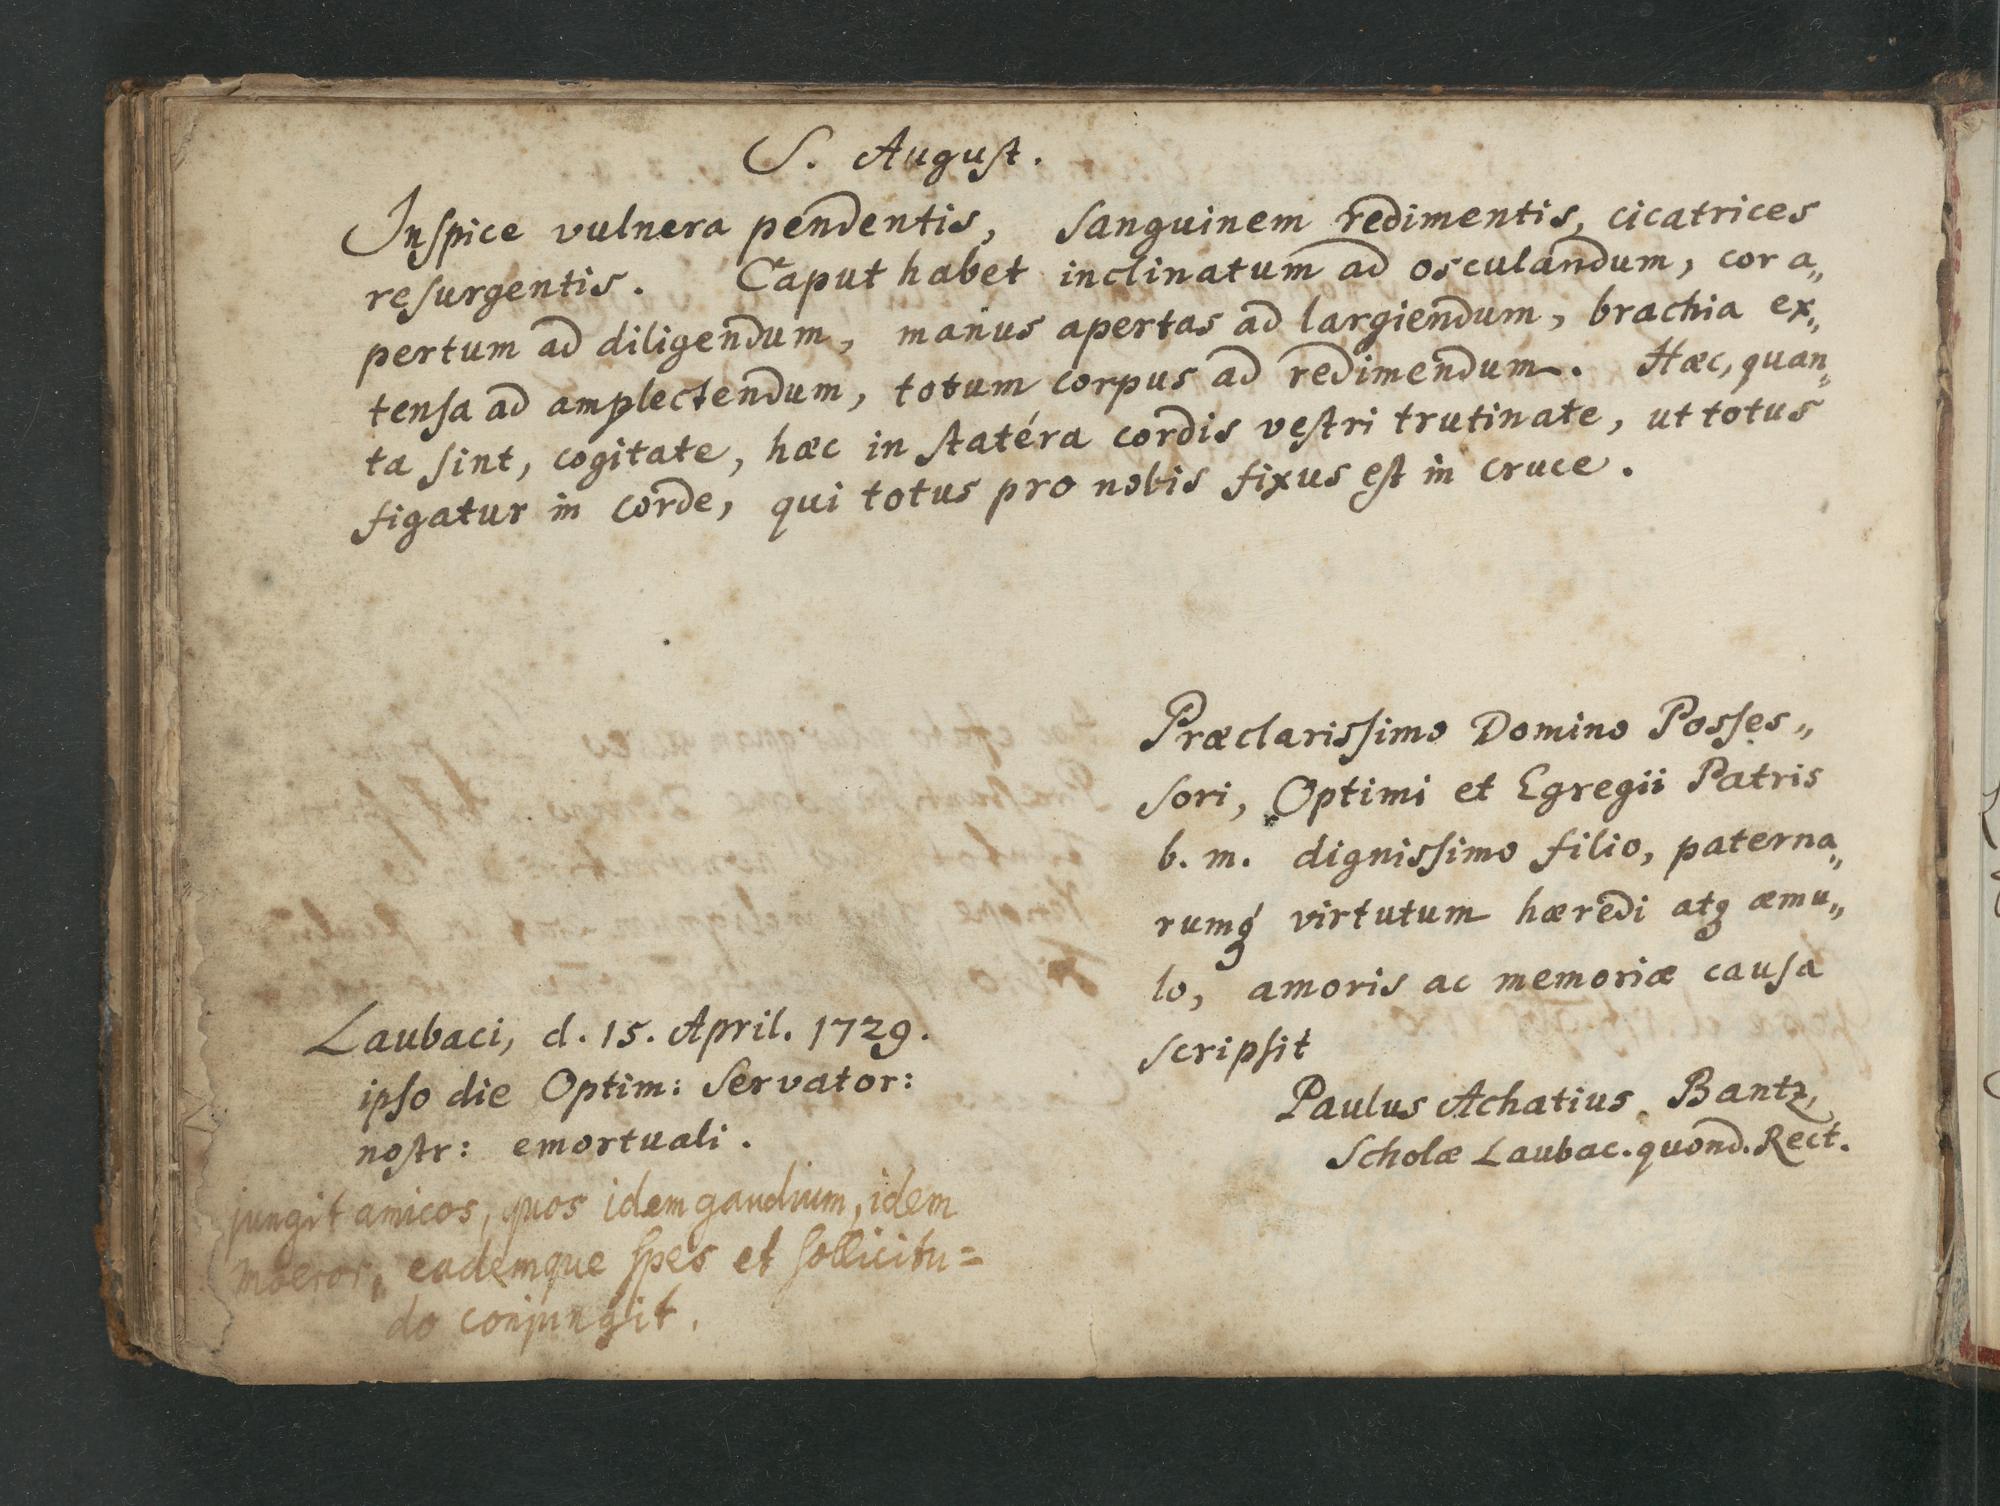 S. August.
Inspice vulnera pendentis, sanguinem redimentis, cicatrices
resurgentis. Caput habet inclinatum ad osculandum, cor a„
pertum ad diligendum, manus apertas ad largiendum, brachia ex„
tensa ad amplectendum, totum corpus ad redimendum. Hæc, quan„
ta sint, cogitate, hæc in statéra cordis vestri trutinate, ut totus
figatur in corde, qui totus pro nobis fixus est in cruce.
Præclarissimo Domino Posses„
sori, Optimi et Egregii Patris
b. m. dignissimo filio, paterna„
rumq́ virtutum hæredi atq æmu„
lo, amoris ac memoriæ causa
scripsit
Paulus Achatius Bantz,
Scholæ Laubac. quond. Rect.
Laubaci, d. 15. April. 1729.
ipso die Optim: Servator:
nostr: emortuali.
jungit amicos, quos idem gaudium, idem
moeror, eademque spes et sollicitu=
do conjungit.